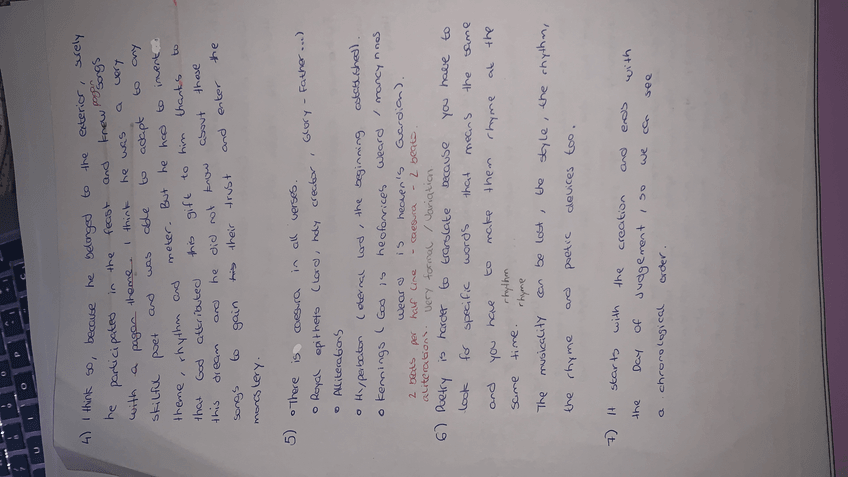 4) I think so, because he belonged to the exterior, surely
he participated in the feast and knew pagan songs
with a pagan theme. I think he was a very
skilful poet and was able to adapt to any
theme, rhythm and meter. But he had to invent
that God attributed this gift to him thanks to
this dream and he did not know about these
songs to gain his their trust and enter the
monastery.
5) • There is caesura in all verses.
• Royal epithets (Lord, holy creator, Glory-Father...)
• Alliterations
• Hyperbaton (eternal lord, the beginning established).
• Kennings (God is heofonrices weard / moncynnes
weard is heaven's Guardian).
2 beats per half line - caesura - 2 beats.
alliterations. Very formal / variation
6) Poetry is harder to translate because you have to
look for specific words that means the same
and you have to make them rhyme at the
same time. rhythm
rhyme
The musicality can be lost, the style, the rhythm,
the rhyme and poetic devices too.
7) It starts with the creation and ends with
the Day of Judgement, so we can see
a chronological order.